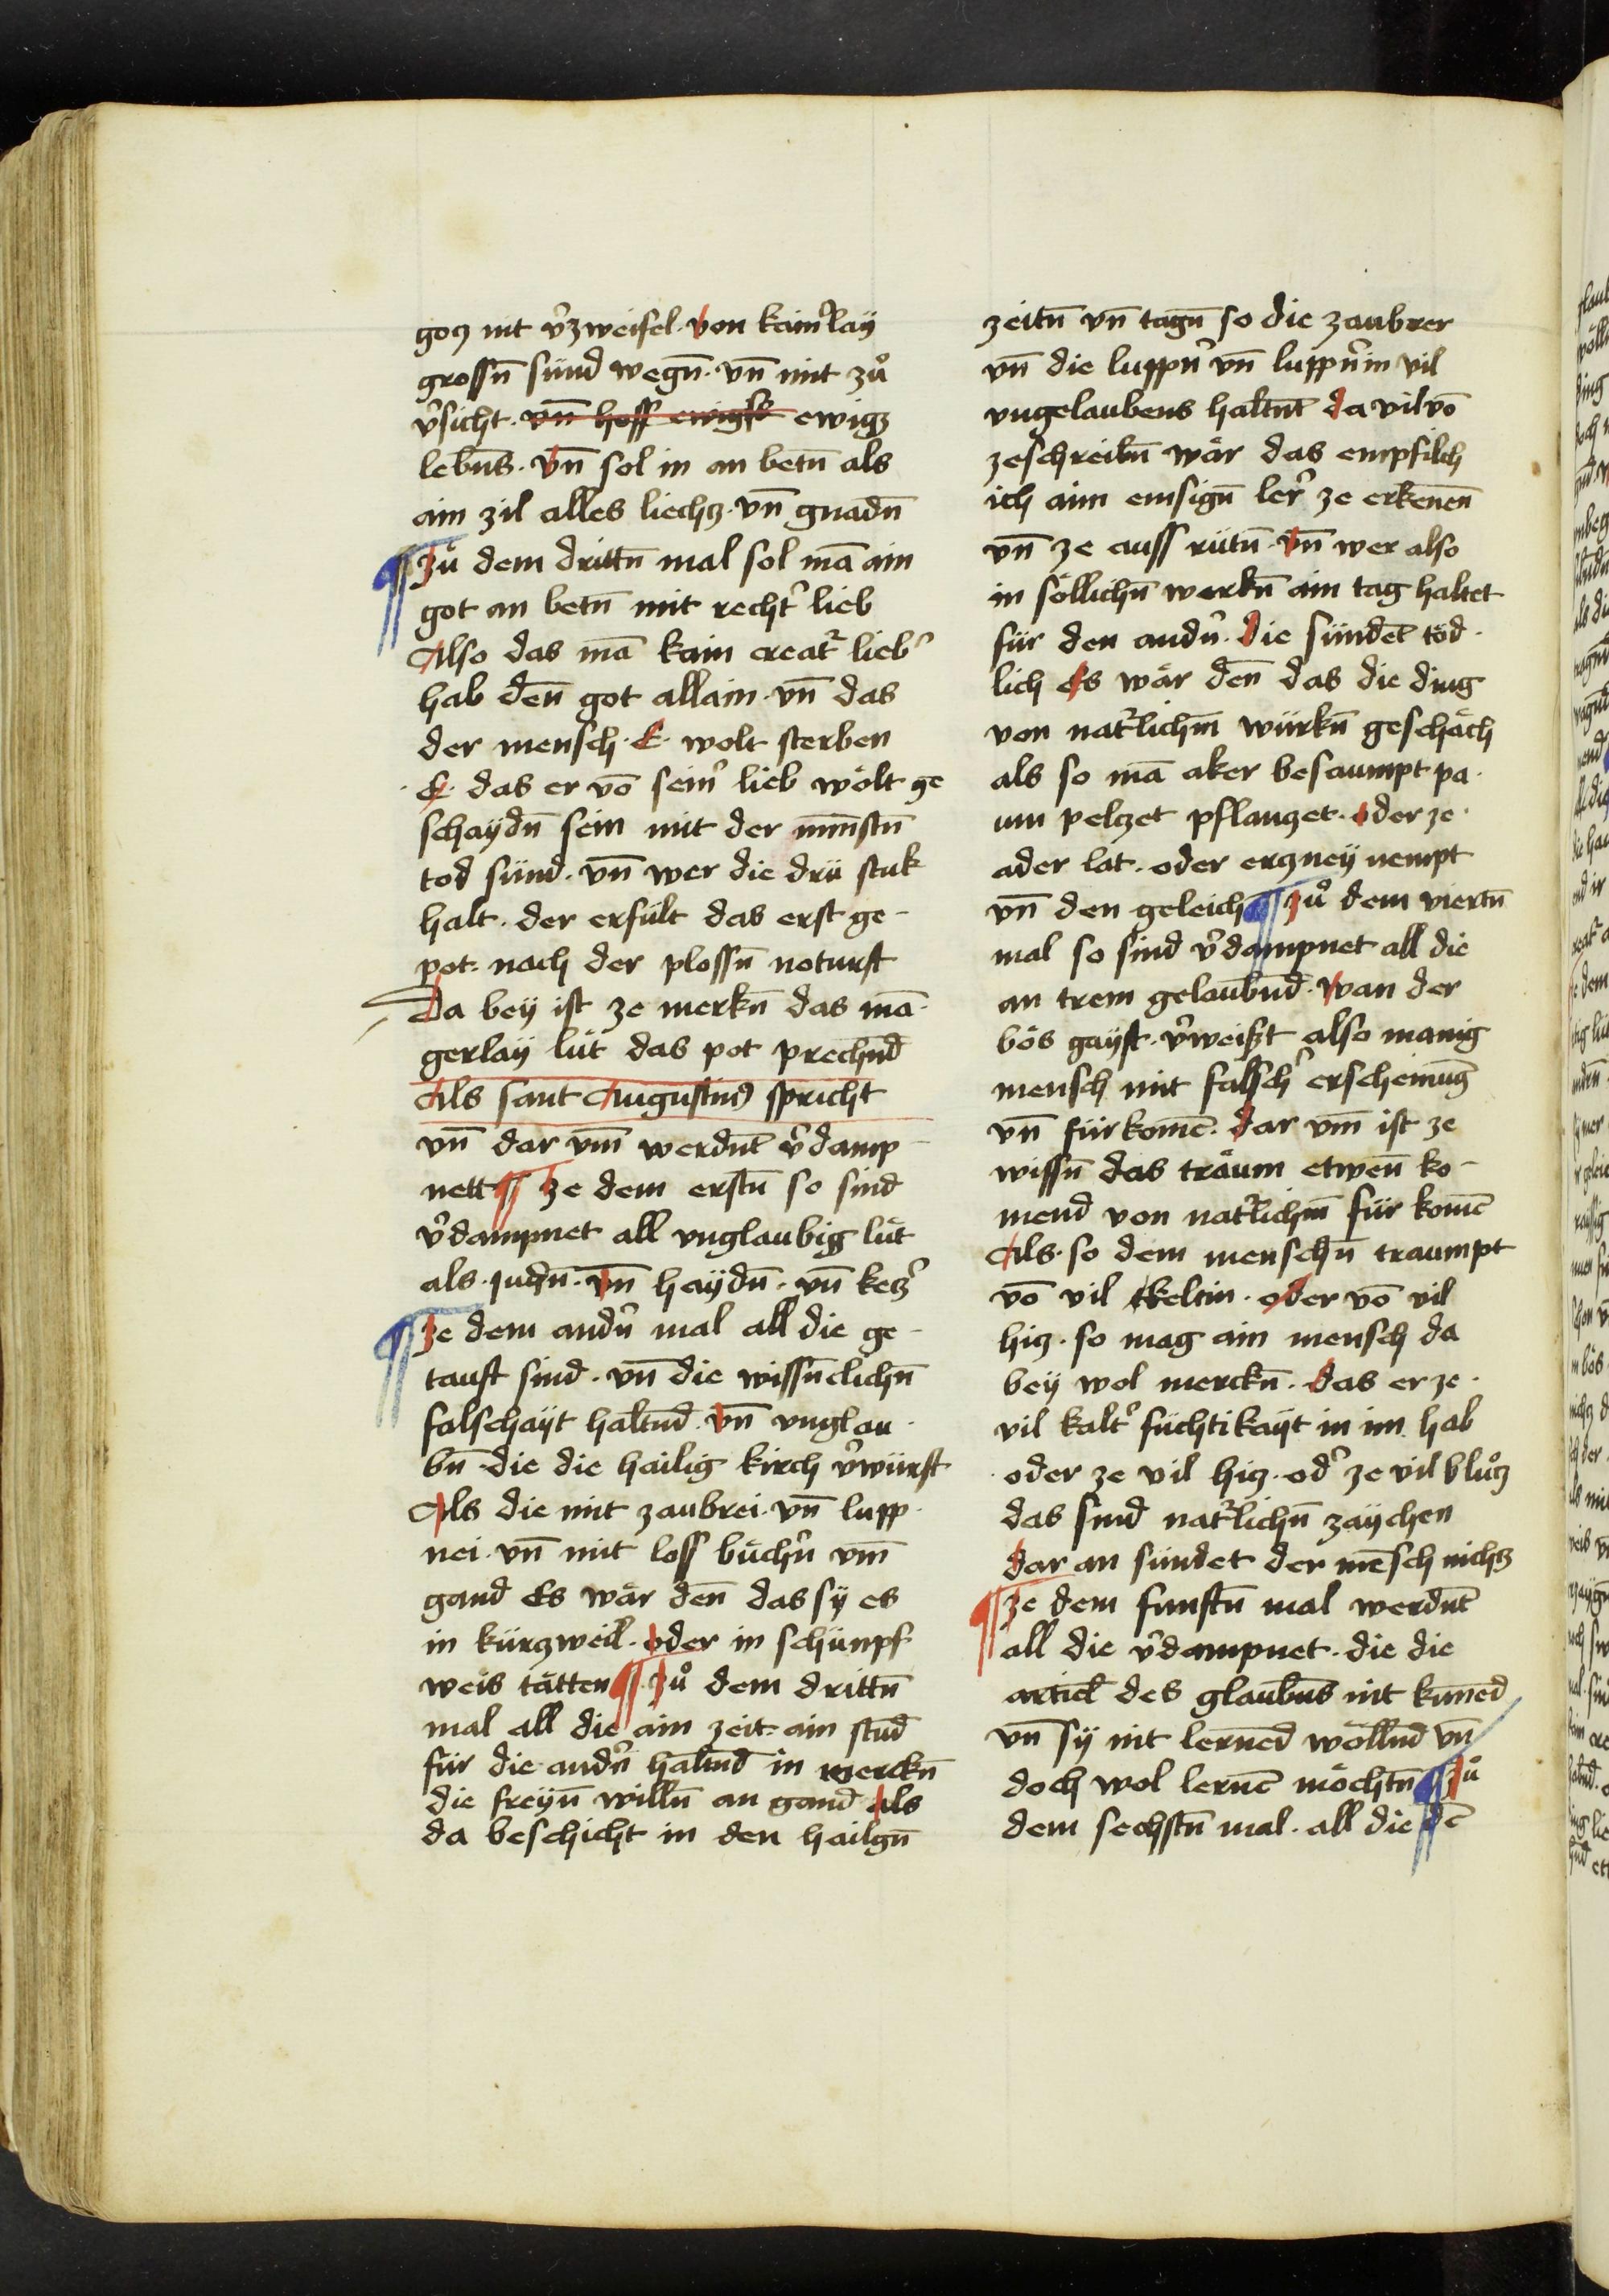 gotz nit v̉zweifel. von kaim̉lay
grossn̄ sünd wegn̄. vn̄ mit zů
v̉sicht. vn̄ hoff ewigsß ewigz
lebn̄s. vn̄ sol in an betn̄ als
ain zil alles liechtz. vn̄ gnadn̄
¶ Zů dem drittn̄ mal sol mā ain
got an betn̄ mit recht̉ lieb
Also das mā kain creat᷑ lieb̉
hab den̄ got allain. vn̄ das
der mensch. E. wolt sterben
.E. das er vō sein̉ lieb wölt ge
schaydn̄ sein mit der minstn̄
tod sünd. vn̄ wer die drü stuk
halt. der erfült das erst ge-
pot. nach der plossn̄ noturft
Da bey ist ze merkn̄ das mā-
gerlay lüt das pot prechn̄d
Als sant Augustin9 spricht
vn̄ dar vm̄ werdn̄t v̉damp-
nett ¶ Ze dem erstn̄ so sind
v̉dampnet all vnglaubig lüt
als. judn̄. vn̄ haydn̄. vn̄ ketz̉
¶ Ze dem andn̉ mal all die ge-
tauft sind. vn̄ die wissn̄clichn̄
falschayt haltn̄d. vn̄ vnglau-
bn̄ die die hailig kirch v̉würft
Als die mit zaubrei. vn̄ lupp-
nei. vn̄ mit loss büchn̉ vm̄
gand Es wär den̄ das sy es
in kürtzweil. oder in schünpf
weis tätten ¶ Zů dem drittn̄
mal all die ain zeit. ain stūd
für die andn̉ haltn̄d in werckn̄
die freyn̄ willn̄ an gand als
da beschicht in den hailgn̄
zeitn̄ vn̄ tagn̄ so die zaubrer
vn̄ die luppn̉ vn̄ luppn̉in vil
vngelaubens haltn̄t da vil vō
zeschreibn̄ wär das empfilch
ich aim emsign̄ ler̉ ze erkenēn
vn̄ ze auss rütn̄. vn̄ wer also
in söllichn̄ werkn̄ ain tag haltet
für den andn̉. die sündet̄ töd-
lich Es wär den̄ das die ding
von nat᷑lichm̄ würkn̄ geschäch
als so mā aker besaumpt pa-
um peltzet pflantzet. oder ze-
ader lät. oder ertzney nempt
vn̄ den geleich ¶ Zů dem viertn̄
mal so sind v̉dampnet all die
an trem gelaubn̄d. wan der
bös gayst. v̉weißt also manig
mensch mit falsch̉ erscheinūg
vn̄ fürkomē. dar vm̄ ist ze
wissn̄ das träum etwen̄ ko-
mend von nat᷑lichm̄ für komē
Als. so dem menschn̄ traumpt
vō vil keltin. oder vō vil
hitz. so mag ain mensch da
bey wol merckn̄. das er ze-
vil kalt̉ füchtikayt in im hab
oder ze vil hitz. od̉ ze vil blůtz
das sind nat᷑lichn̄ zaychen
dar an sündet der mēsch nichtz
¶ Ze dem funftn̄ mal werdn̄t
all die v̉dampnet. die die
artiel̄ des glaubn̄s nit kun̄ed
vn̄ sy nit lernēd wöllnd vn̄
doch wol lernē möchtn̄ ¶ Zů
dem sechstn̄ mal. all die dē